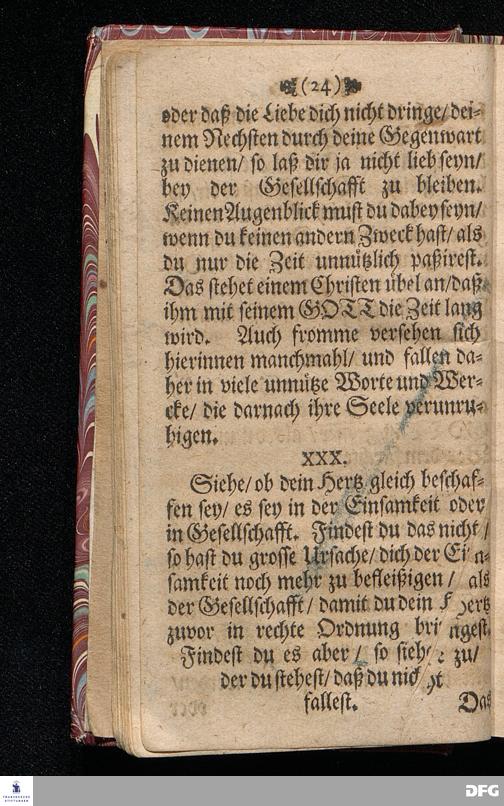 (24)
oder daß die Liebe dich nicht dringe/ dei-
nem Nechsten durch deine Gegenwart
zu dienen/ so laß dir ja nicht lieb seyn/
bey der Gesellschafft zu bleiben.
Keinen Augenblick must du dabey seyn/
wenn du keinen andern Zweck hast/ als
du nur die Zeit unnützlich paßirest.
Das stehet einem Christen übel an/ daß
ihm mit seinem GOTT die Zeit lang
wird. Auch fromme versehen sich
hierinnen manchmahl/ und fallen da-
her in viele unnütze Worte und Wer-
cke/ die darnach ihre Seele verunru-
higen.
XXX.
Siehe/ ob dein Hertz gleich beschaf-
fen sey/ es sey in der Einsamkeit oder
in Gesellschafft. Findest du das nicht/
so hast du grosse Ursache/ dich der Ein-
samkeit noch mehr zu befleißigen/ als
der Gesellschafft/ damit du dein Hertz
zuvor in rechte Ordnung bringest.
Findest du es aber/ so siehe zu/
der du stehest/ daß du nicht
fallest.
Das
FRANCKESCHE
STIFTUNGEN
DFG